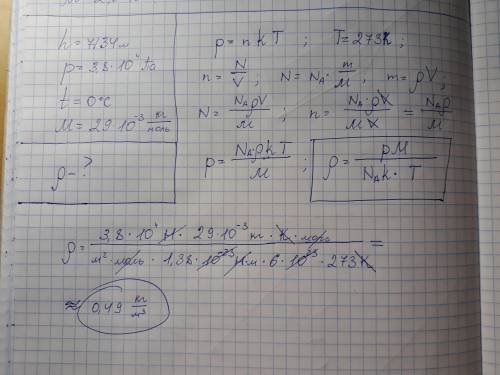 h = 7134 м
p = 3,8·10⁴ Па
t = 0°C
M = 29·10⁻³ кг/моль
ρ - ?
p = nkT ; T = 273К ;
n = N/V ; N = N_A · m/M ; m = ρV ;
N = N_AρV/M ; n = N_A·ρV/MV = N_Aρ/M
p = N_A·ρkT/M ; ρ = pM/N_Ak·T
ρ = 3,8·10⁴ Н·29·10⁻³ кг·К·моль / м²·моль·1,38·10⁻²³ Н·м·6·10²³·273К =
≈ 0,49 кг/м³